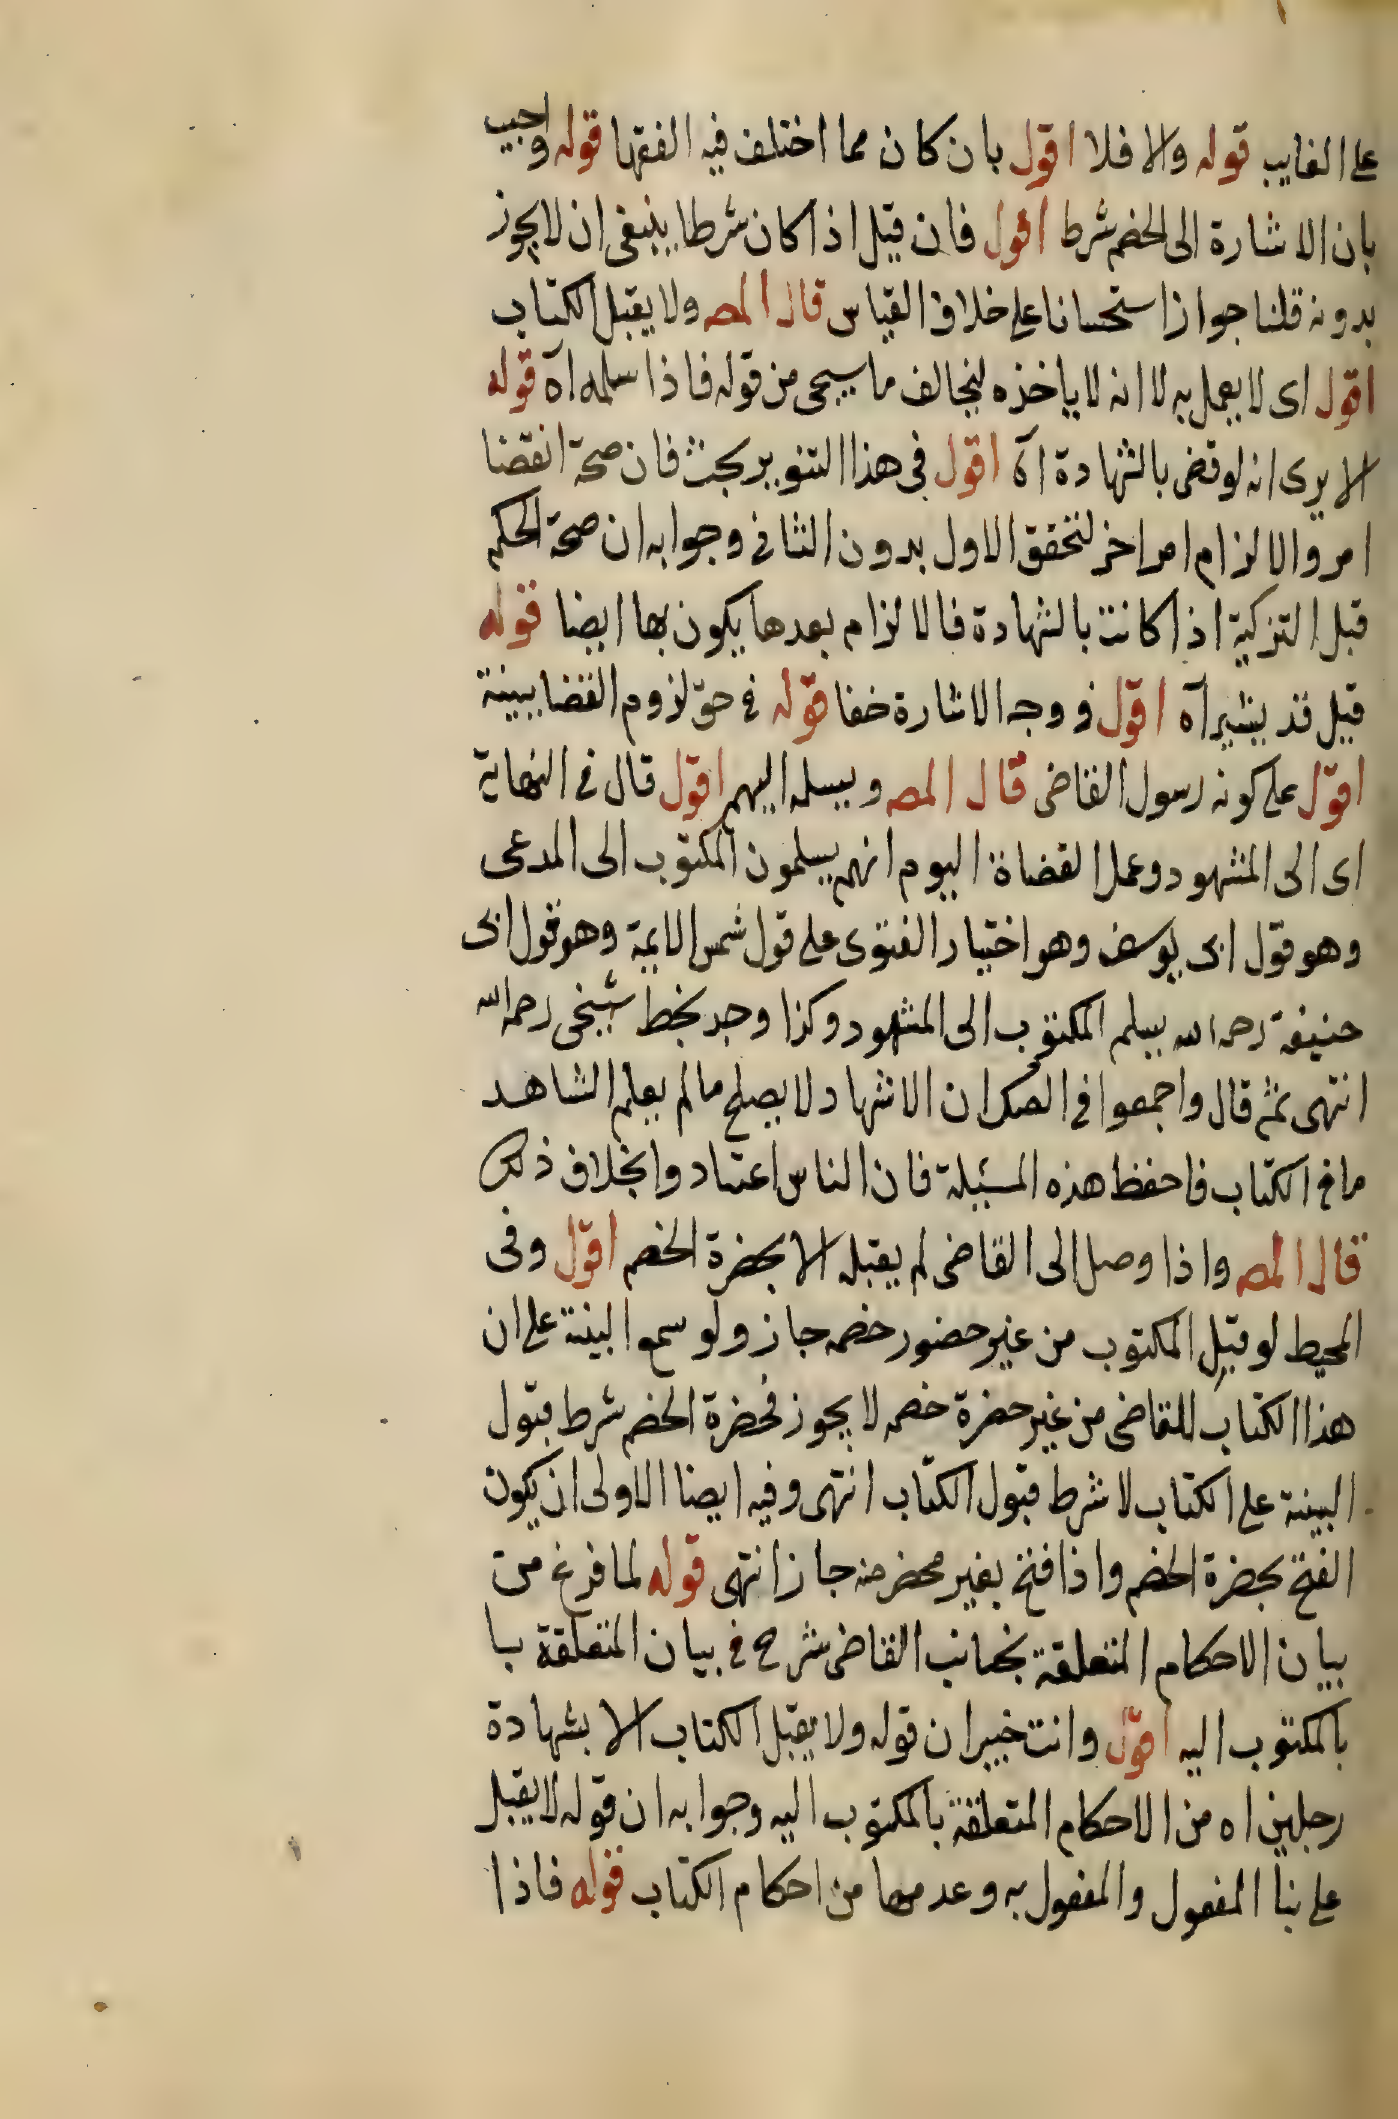 على الغايب قوله والا فلا اقول بان كان مما اختلف فيه الفقها قوله واجيب
بان الاشارة الى الخصم شرط اقول فان قيل اذا كان شرطا ينبغى ان لا يجوز
بدونه قلنا جوازا ستحسانا على خلاف القياس قال المصـ ولا يقبل الكتاب
اقول اى لا يعمل به لا انه لا ياخذه ليخالف ما سيجى من قوله فاذا سلمه اه قوله
الا يرى انه لو قضى بالشهادة اه اقول فى هذا التنوير بحث فان صحة القضا
امر والالزام امر اخر لتحقق الاول بدون الثانى وجوابه ان صحة الحكم
قبل التزكية اذا كانت بالشهادة فالالزام بعدها يكون بها ايضا قوله
قيل قد يشير اه اقول فى وجه الاشارة خفا قوله فى حق لزوم القضا ببينة
اقول على كونه رسول القاضى قال المصـ ويسلمه اليهم اقول قال فى النهاية
اى الى الشهود وعمل القضاة اليوم انهم يسلمون المكتوب الى المدعى
وهو قول ابى يوسف وهو اختيار الفتوى على قول شمس الايمة وهو قول ابى
حنيفة رحمه الله يسلم المكتوب الى الشهود وكذا وجد بخط شيخى رحمه الله
انتهى ثم قال واجمعوا فى الصك ان الاشهاد لا يصلح ما لم يعلم الشاهد
ما فى الكتاب فاحفظ هذه المسئلة فان الناس اعتادوا بخلاف ذلك
قال المصـ واذا وصل الى القاضى لم يقبله الا بحضرة الخصم اقول وفى
المحيط لو قبل المكتوب من غير حضور خصمه جاز ولو سمع البينة على ان
هذا الكتاب للقاضى من غير حضرة خصمه لا يجوز فحضرة الخصم شرط قبول
البينة على الكتاب لا شرط قبول الكتاب انتهى وفيه ايضا الاولى ان يكون
الفتح بحضرة الخصم واذا فتح بغير محضر منه جاز انتهى قوله لما فرغ من
بيان الاحكام المتعلقة بجانب القاضى شرح فى بيان المتعلقة با
بالمكتوب اليه اقول وانت خبير ان قوله ولا يقبل الكتاب الا بشهادة
رجلين اه من الاحكام المتعلقة بالمكتوب اليه وجوابه ان قوله لا يقبل
على بنا المفعول والمفعول به وعدمها من احكام الكتاب قوله فاذا